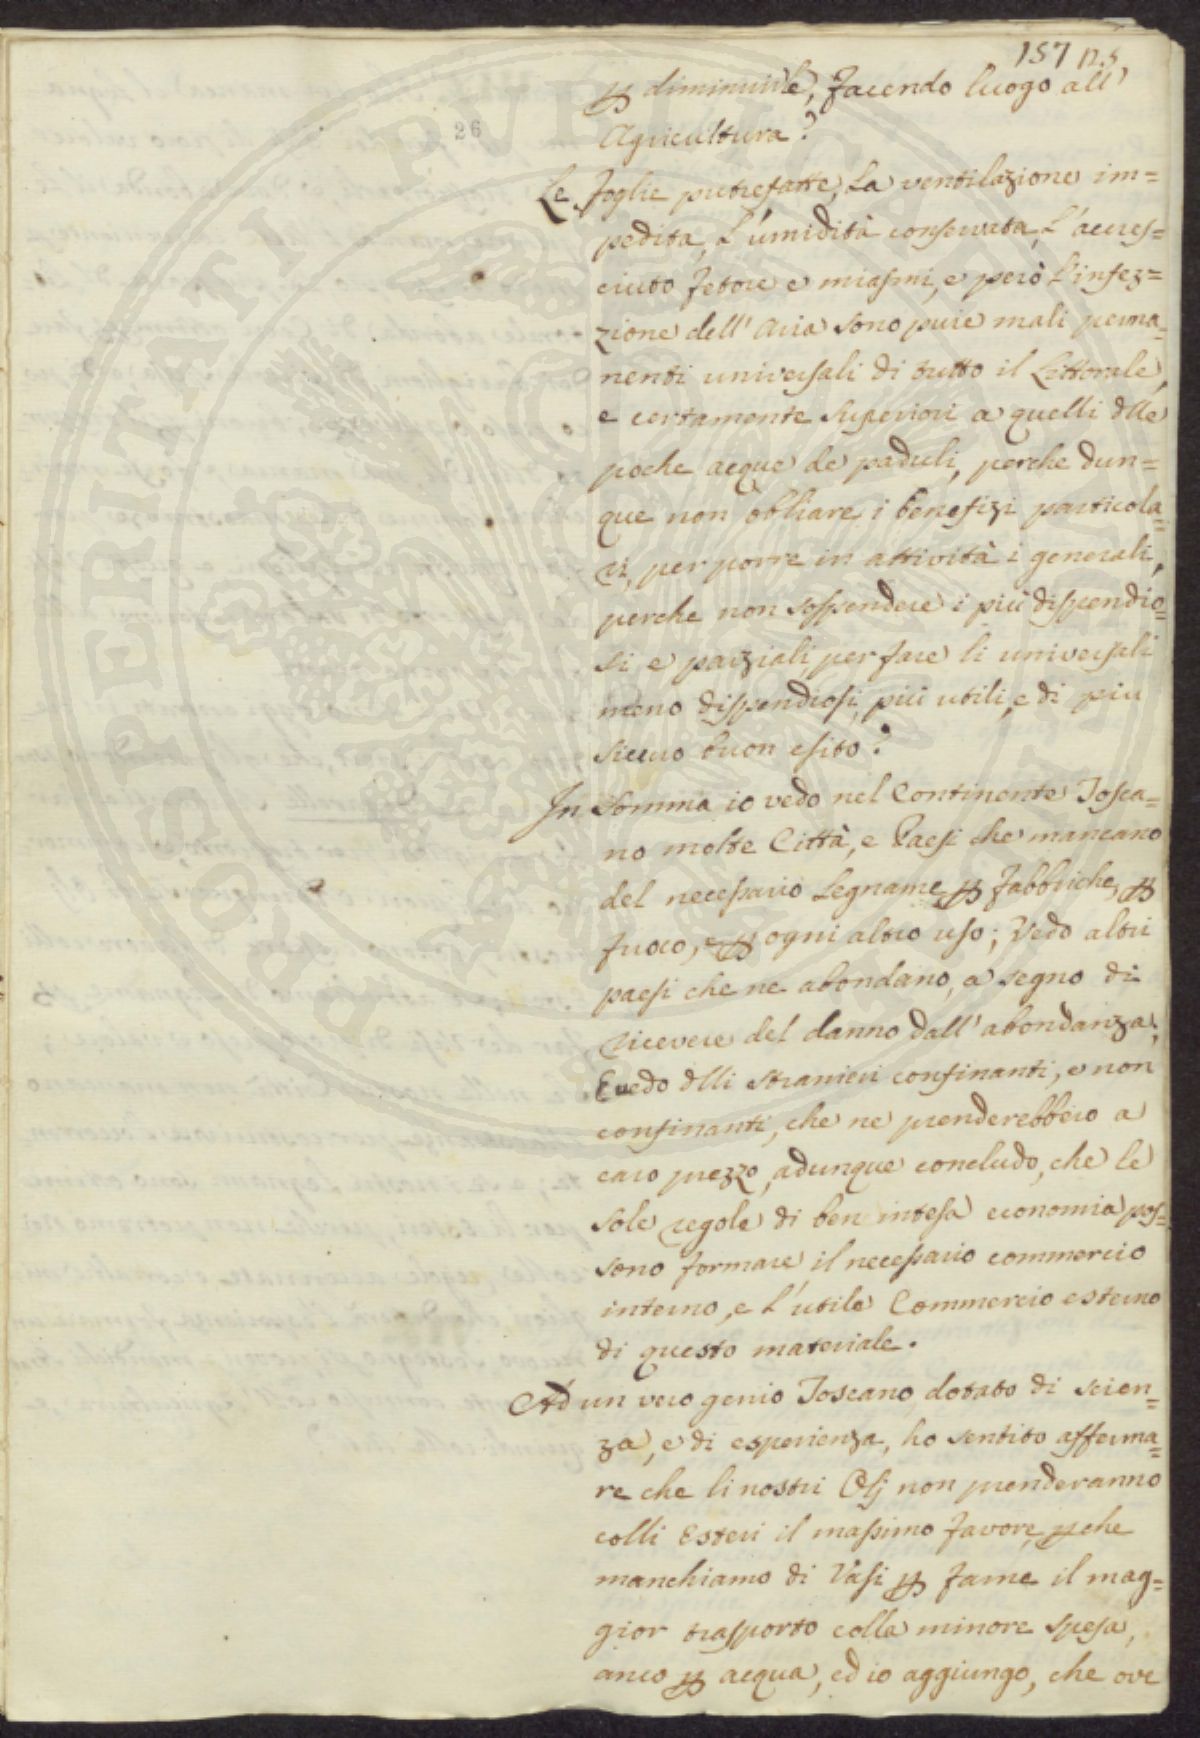 157 125
26
p diminuirle, facendo luogo all'
Agricultura?
Le foglie putrefatte, La ventilazione im=
pedita, L'umidità conservata, L'accres=
ciuto fetore e miasmi, e però l'infez=
zione dell'Aria sono pure mali perma=
nenti universali di tutto il Littorale,
e certamente superiori a quelli dlle
poche acque de paduli, perche dun=
que non obliare i benefizi particola=
ri, per porre in attività i generali,
perche non sospendere i più dispendio=
si e parziali, per fare li universali
meno dispendiosi, più utili, e di più
sicuro buon esito?
In somma io vedo nel Continente Tosca=
no molte Città, e Paesi che mancano
del necessario Legname p fabbriche, p
fuoco, e p ogni altro uso; Vedo altri
paesi che ne abondano, a segno di
ricevere del danno dall'abondanza;
E vedo dlli stranieri confinanti, e non
confinanti, che ne prenderebbero a
caro prezzo, adunque concludo, che le
sole regole di ben intesa economia pos=
sono formare il necessario commercio
interno, e L'utile Commercio esterno
di questo materiale.
Ad un vero genio Toscano, dotato di scien=
za, e di esperienza, ho sentito afferma=
re che li nostri Olj non prenderanno
colli Esteri il massimo favore, pche
manchiamo di Vasi p farne il mag=
gior trasporto colla minore spesa,
anco p acqua, ed io aggiungo, che ove
PROSPERITATI PVBLICAE